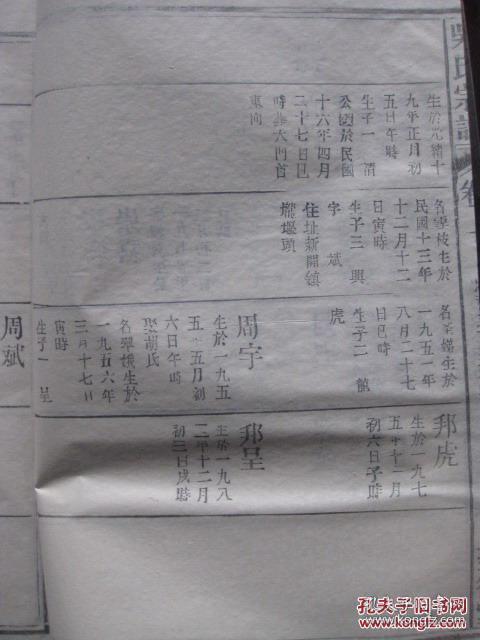 吴氏宗譜
卷
生於光緒十
九年正月初
五日午時
生子一
公殁於民國
十六年四月
二十七日巳
時葬大門首
東向
名季枝生於
民國十三年
十二月十二
日寅時
生子三 興
宇 斌
住址新開鎮
壠堰頭
生於
一九五一年
八月二十七
日巳時
生子二
虎
周宇
生於一九五
五年五月初
六日午時
娶胡氏
生於
一九五六年
三月十七日
寅時
生子一 呈
邦虎
生於一九七
五年十一月
初六日子時
邦呈
生於一九八
二年十二月
初三日戌時
周斌
孔夫子旧书网